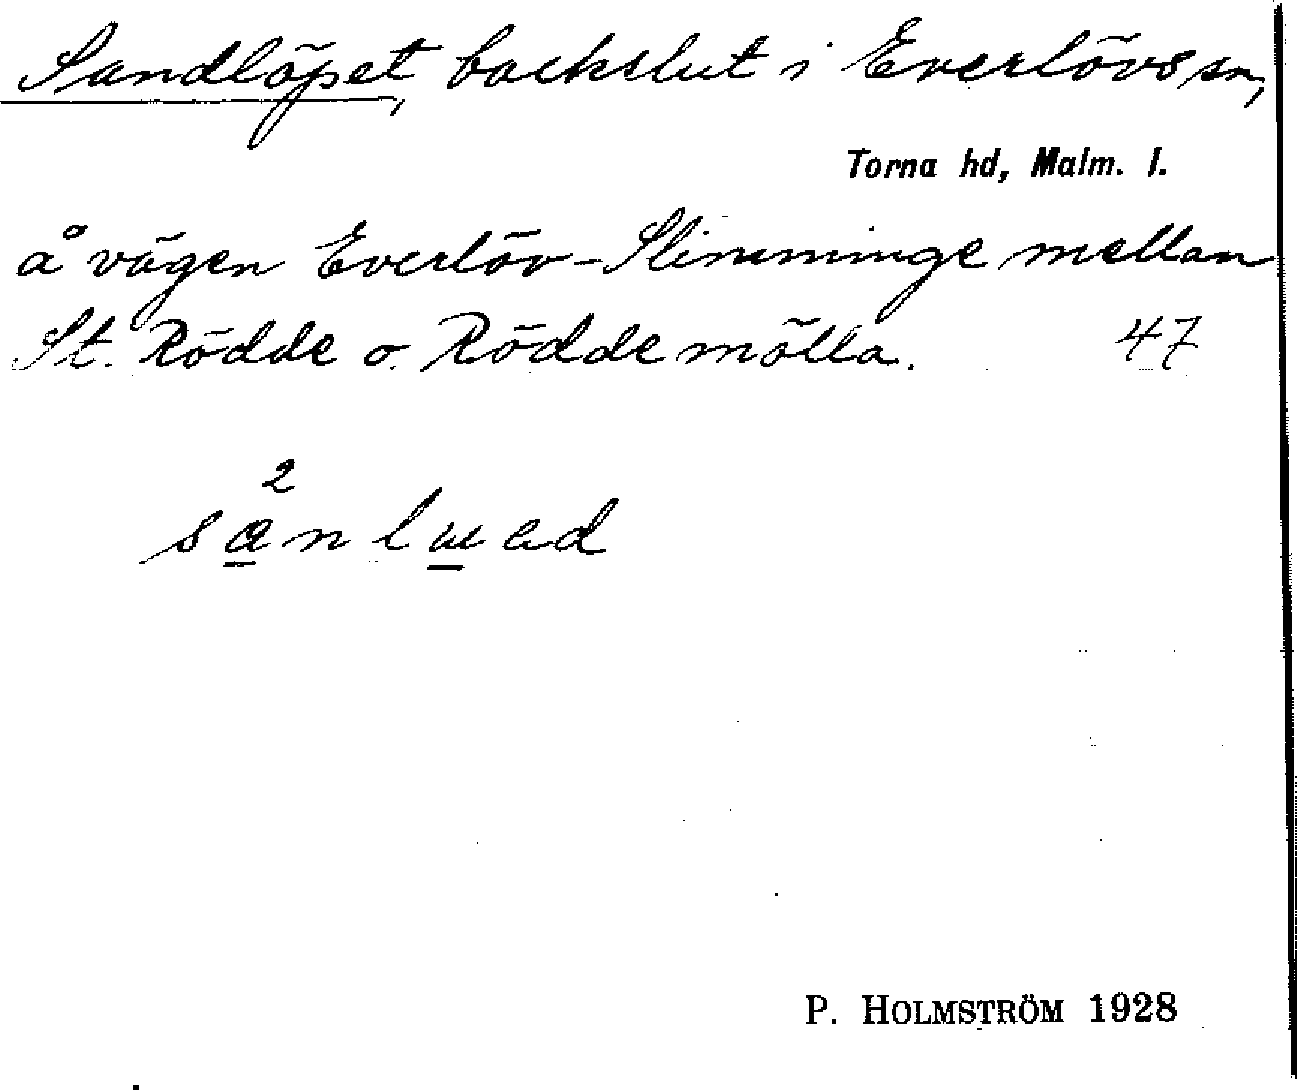 Sandlöpet, backslut i Everlövs sn,
Torna hd, Malm. l.
å vägen Everlöv-Slimminge mellan
St. Rödde o. Röddemölla. 47
2
P. HOLMSTRÖM 1928